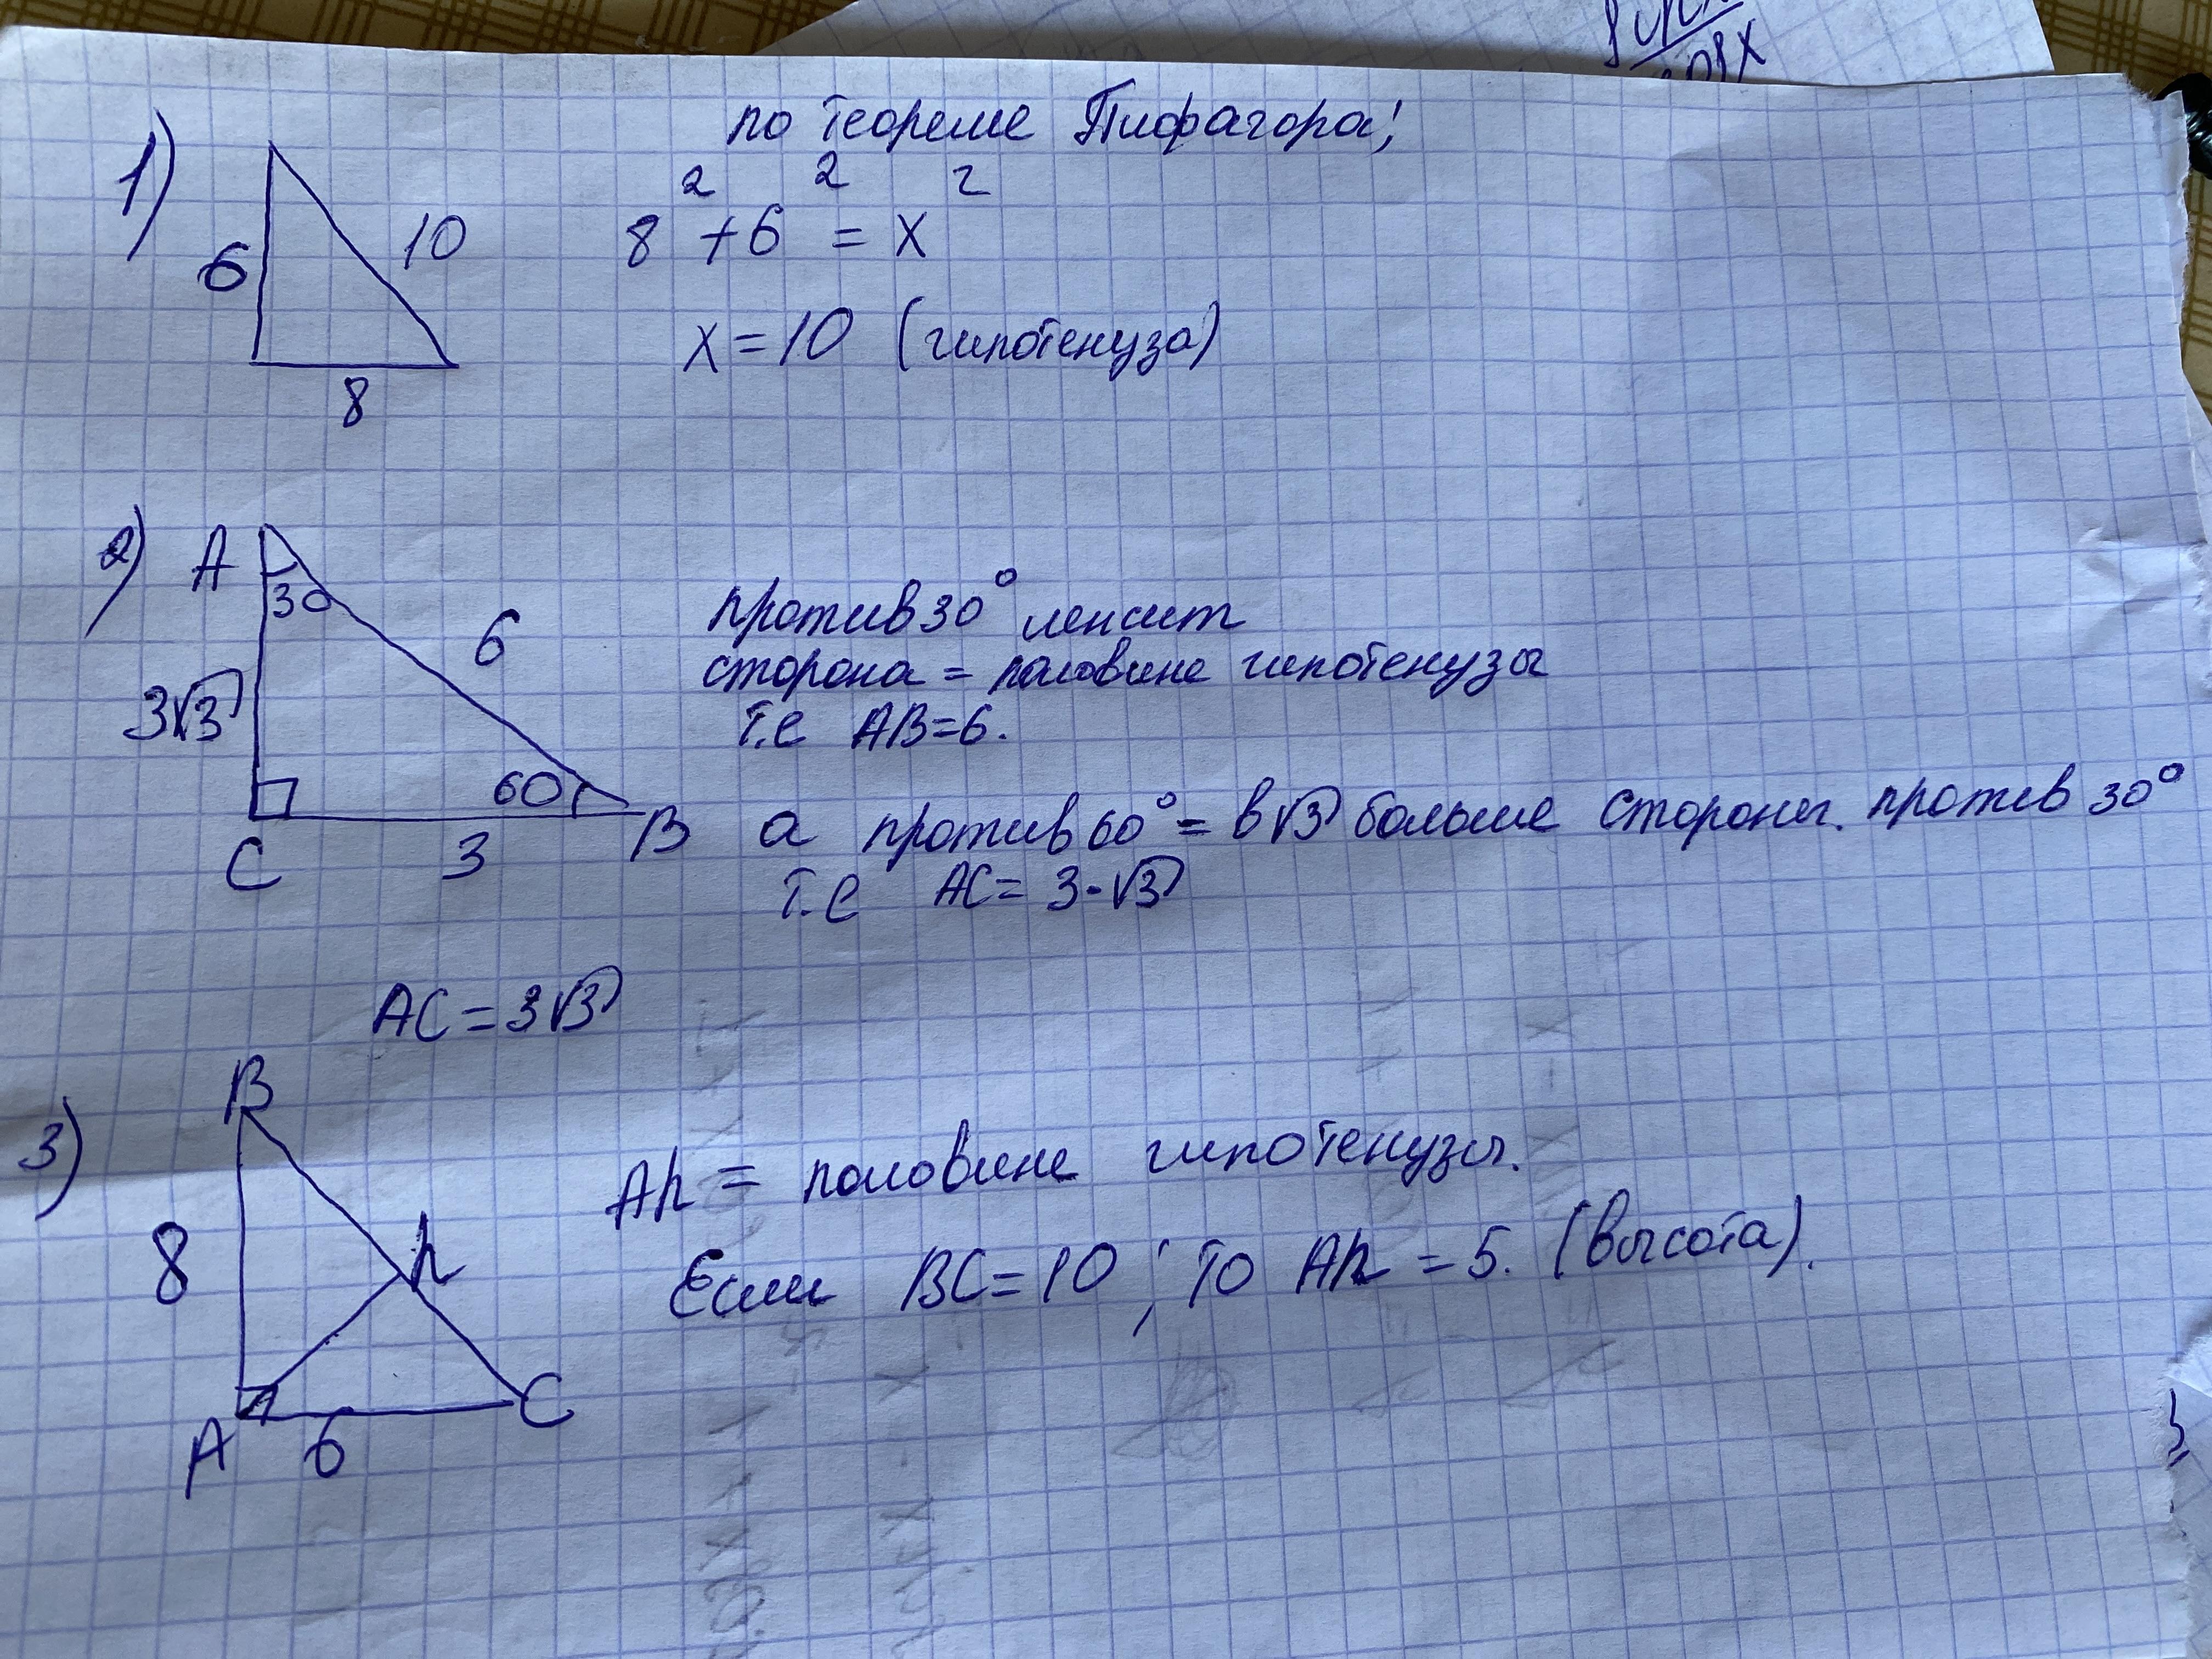 по теореме Пифагора;
1)
6
10
8
8² + 6² = x²
x = 10 (гипотенуза)
2)
A
30
6
3√3
60
C
3
B
против 30° лежит
сторона = половине гипотенузы
т.е AB = 6.
а против 60° = в √3 больше стороны. против 30°
т.е AC = 3·√3
AC = 3√3
3)
B
8
h
A
6
C
Ah = половине гипотенузы.
Если BC = 10; то Ah = 5. (высота).